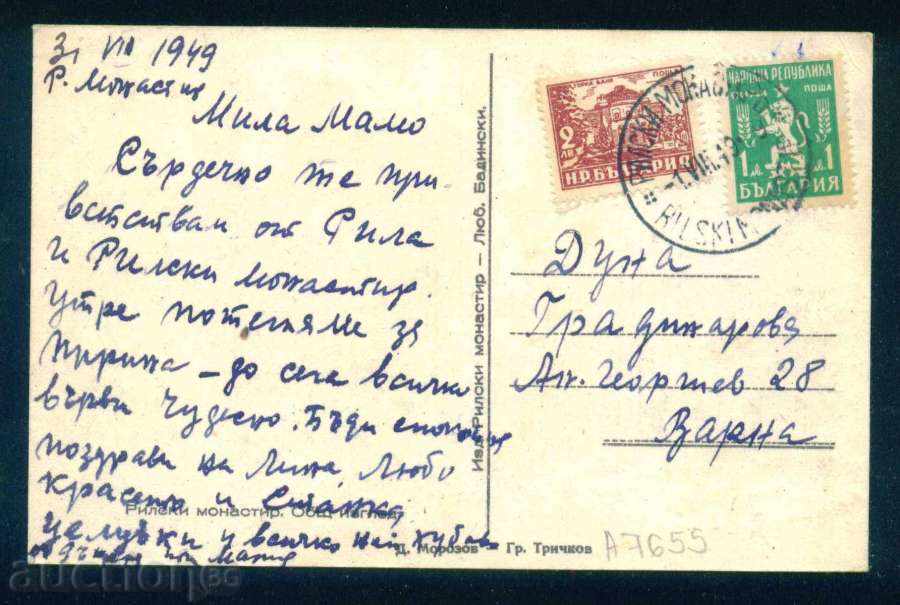 31 VII 1949
Р. Монастир
Мила Мамо
Сърдечно те при-
ветствам от Рила
и Рилски монастир.
Утре потегляме за
Пирина – до сега всичко
върви чудесно. Бъди спокойна
поздрави на Лиля, Любо
Красето и
целувки и всичко най хубаво
от дъщеря ти Мария
Рилски монастир. Общ изглед
Д. Морозов – Гр. Тричков
Изд. Рилски монастир – Люб. Бадински.
ГОРНА БАНЯ ПОЩА
2 ЛВ
НР. БЪЛГАРИЯ
НАРОДНА РЕПУБЛИКА
ПОЩА
1 Л. Л. 1
БЪЛГАРИЯ
РИЛСКИ МОНАСТИР
-1.VIII.49
RILSKI
Дуна
Градинарова
Ап. Георгиев 28
Варна
А7655
auction BG